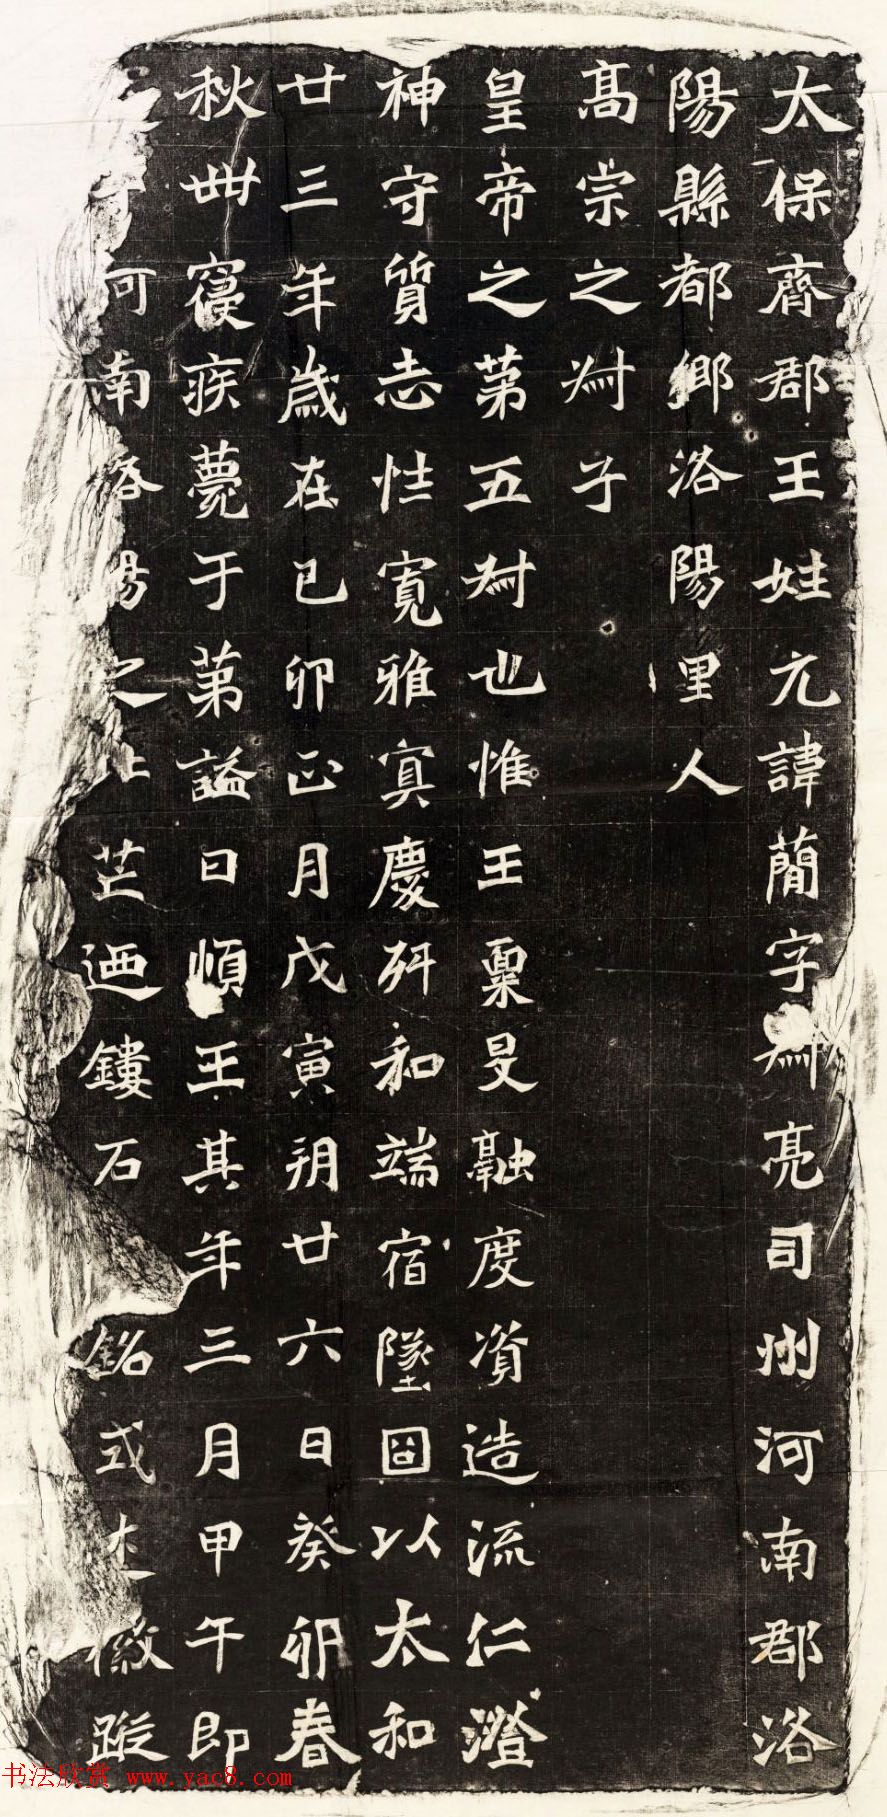 太保齊郡王姓元諱簡字叔亮司州河南郡洛
陽縣都鄉洛陽里人
高宗之叔子
皇帝之第五叔也惟王稟旻融度資造流仁澄
神守質志性寬雅寘慶和端宿墜固以太和
廿三年歲在己卯正月戊寅朔廿六日癸卯春
秋卌寢疾薨于第謚曰順王其年三月甲午即
河南洛陽之北芒迺鏤石銘式述徽蹤
书法欣赏 www.yac8.com